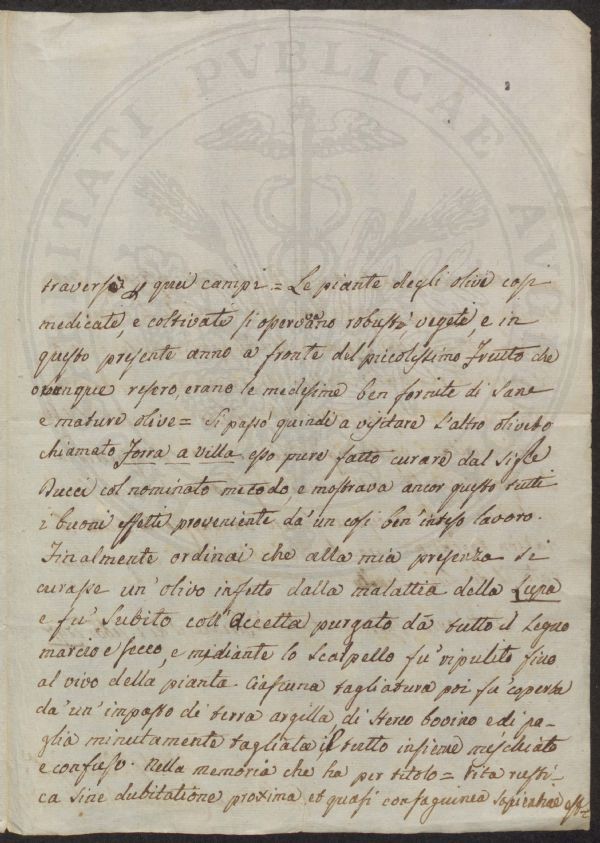 PUBLICAE
traverso quei campi = Le piante degli olivi così
medicate, e coltivate si osservano robuste, vegete, e in
questo presente anno a fronte del piccolissimo frutto che
ovunque resero, erano le medesime ben fornite di sane
e mature olive = Si passò quindi a visitare l'altro oliveto
chiamato Torra a villa esso pure fatto curare dal Sigre
Bucci col nominato metodo, e mostrava ancor questo tutti
i buoni effetti proveniente da un così ben'inteso lavoro.
Finalmente ordinai che alla mia presenza si
curasse un'olivo infetto dalla malattia della Lupa
e fu' subito coll'accetta purgato dà tutto il legno
marcio e secco, e mediante lo scalpello fu' ripulito fino
al vivo della pianta. Ciascuna tagliatura poi fu' coperta
da' un'impasto di terra argilla, di sterco bovino e di pa-
glia minutamente tagliata, il tutto insieme meschiato
e confuso. Nella memoria che ha per titolo = vita rusti-
ca sine dubitatione proxima, et quasi consaguinea sapientiae